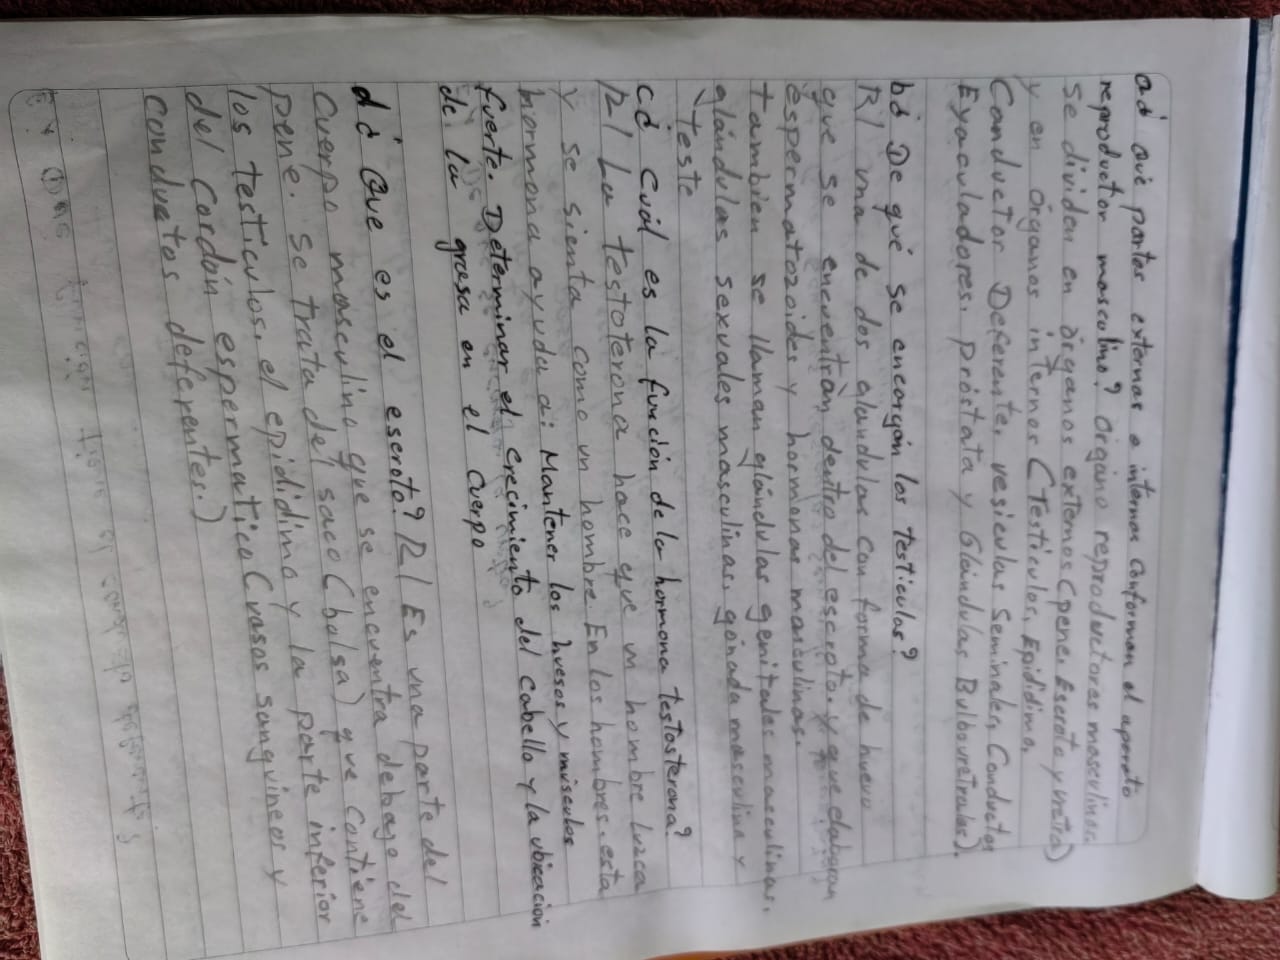 a¿ qué partes externas o internas conforman el aparato
reproductor masculino? órgano reproductores masculinos.
se dividen en órganos externos (pene, Escroto y uretra)
y en órganos internos (Testículos, Epididimo,
Conductor Deferente, vesículas Seminales, Conductos
Eyaculadores, próstata y Glándulas Bulbouretrales).
b¿ De qué se encargan los testiculos?
R/ una de dos glandulas con forma de huevo
que se encuentran dentro del escroto. y que elaboran
espermatozoides y hormonas masculinas.
tambien se llaman glándulas genitales masculinas,
glándulas sexuales masculinas, gónada masculina y
teste
c¿ cuál es la función de la hormona testosterona?
R/ La testoterona hace que un hombre luzca
y se sienta como un hombre. En los hombres, esta
hormona ayuda a: Mantener los huesos y músculos
fuerte. Determinar el crecimiento del cabello y la ubicación
de la grasa en el cuerpo
d¿ Que es el escroto? R/ Es una parte del
cuerpo masculino que se encuentra debajo del
pene. se trata del saco (bolsa) que contiene
los testiculos, el epididimo y la parte inferior
del cordón espermatico (vasos sanguineos y
conductos deferentes.)